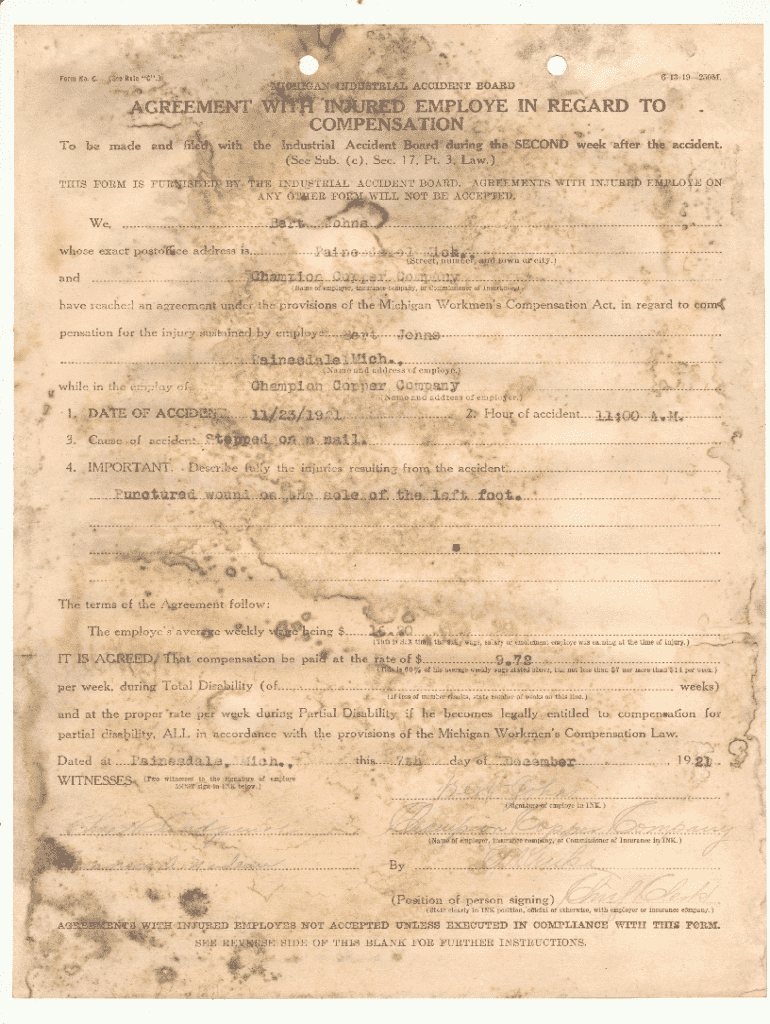 Form No. C. (See Rule "C".) 6-13-19 250M.
MICHIGAN INDUSTRIAL ACCIDENT BOARD
AGREEMENT WITH INJURED EMPLOYE IN REGARD TO
COMPENSATION
To be made and filed with the Industrial Accident Board during the SECOND week after the accident.
(See Sub. (c), Sec. 17, Pt. 3, Law.)
THIS FORM IS FURNISHED BY THE INDUSTRIAL ACCIDENT BOARD. AGREEMENTS WITH INJURED EMPLOYE ON
ANY OTHER FORM WILL NOT BE ACCEPTED.
We, Bert Johns
whose exact postoffice address is Mich.,
(Street, number, and town or city.)
and Champion Copper Company
(Name of employer, insurance company, or Commissioner of Insurance)
have reached an agreement under the provisions of the Michigan Workmen's Compensation Act, in regard to com-
pensation for the injury sustained by employe Bert Johns
Painesdale Mich.,
(Name and address of employe.)
while in the employ of Champion Copper Company
(Name and address of employer.)
1. DATE OF ACCIDENT 11/23/1921 2. Hour of accident 11:00 A.M.
3. Cause of accident Stepped on a nail.
4. IMPORTANT. Describe fully the injuries resulting from the accident
Punctured wound on the sole of the left foot.
The terms of the Agreement follow:
The employe's average weekly wage being $
(This is six times the daily wage, salary or emolument employe was earning at the time of injury.)
IT IS AGREED, That compensation be paid at the rate of $ 9.72
(This is 60% of his average weekly wage stated above, but not less than $7 nor more than $14 per week.)
per week, during Total Disability (of weeks)
(If loss of member claims, state number of weeks on this line.)
and at the proper rate per week during Partial Disability if he becomes legally entitled to compensation for
partial disability, ALL in accordance with the provisions of the Michigan Workmen's Compensation Law.
Dated at Painesdale, Mich., this 7th day of December, 1921.
WITNESSES (Two witnesses to the signature of employe
MUST sign in INK below.)
(Signature of employe in INK.)
Champion Copper Company
(Name of employer, insurance company, or Commissioner of Insurance in INK.)
By
(Position of person signing) Chief Clerk
(State clearly in INK position, official or otherwise, with employer or insurance company.)
AGREEMENTS WITH INJURED EMPLOYES NOT ACCEPTED UNLESS EXECUTED IN COMPLIANCE WITH THIS FORM.
SEE REVERSE SIDE OF THIS BLANK FOR FURTHER INSTRUCTIONS.